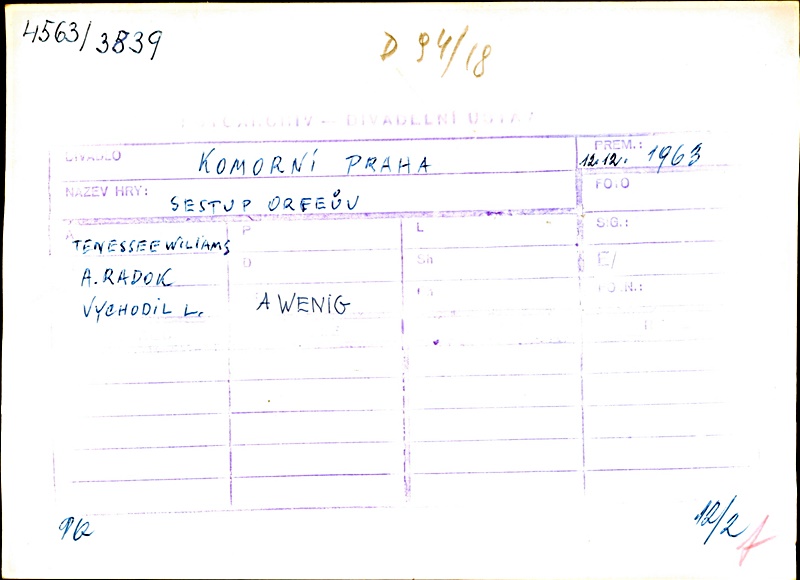 4563/3839
D 94/18
DIVADELNÍ ÚSTAV
DIVADLO KOMORNÍ PRAHA PREM.: 12.12. 1963
NÁZEV HRY: SESTUP ORFEŮV FOTO
A TENESSEE WILIAMS P L SIG.:
A. RADOK D Sh E/
VYCHODIL L. A WENIG
12/2